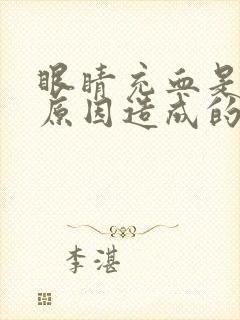 眼睛充血是
原因造成的
李湛